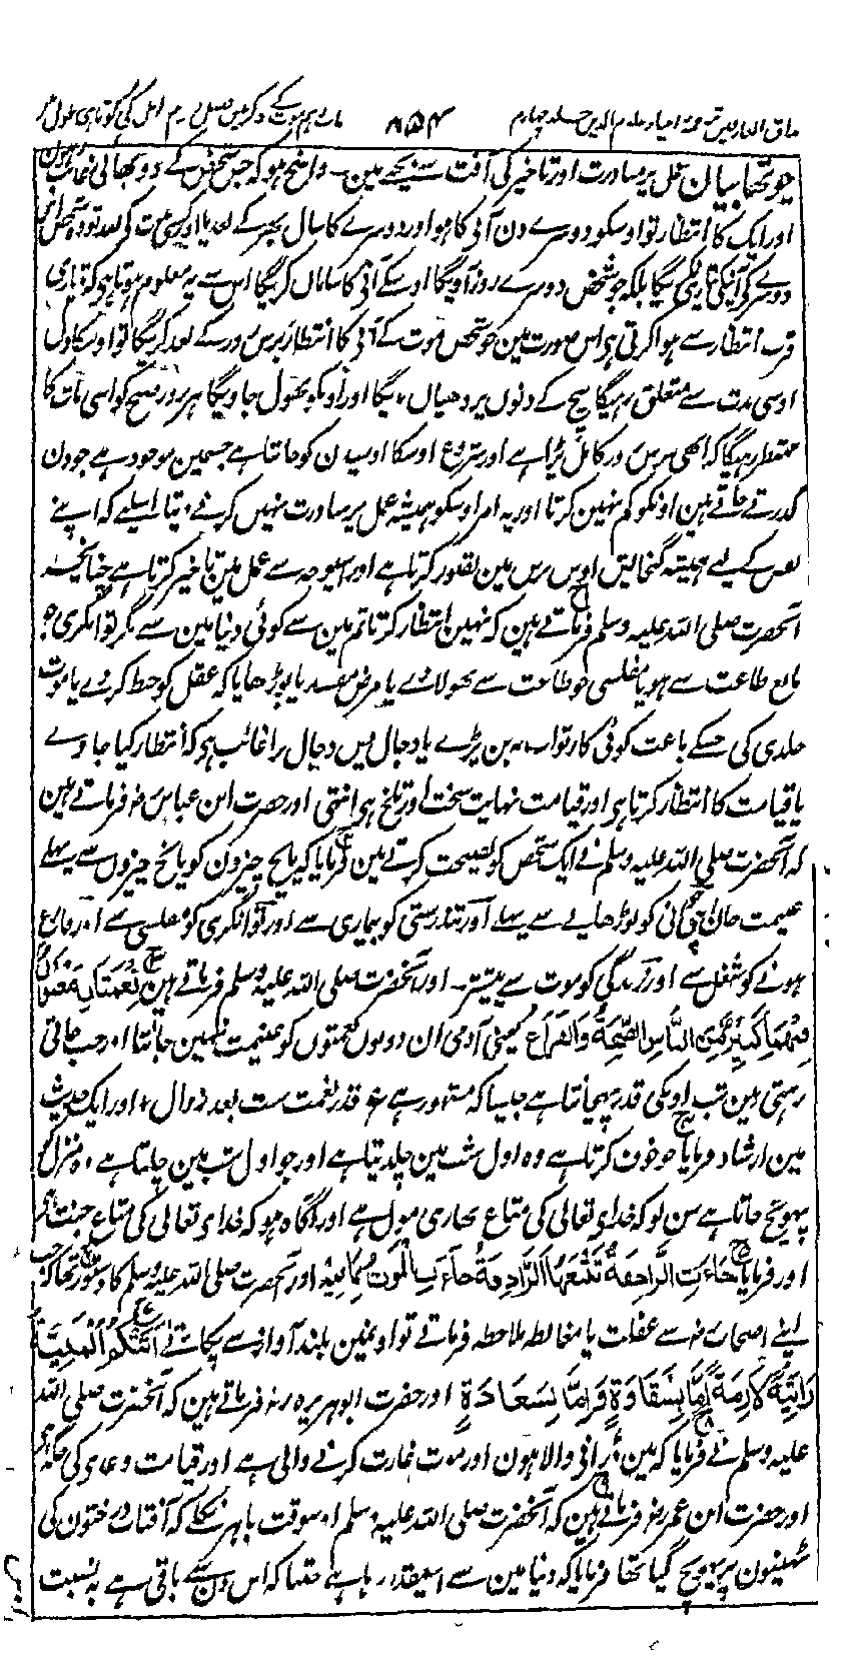 مذاق العارفین ترجمہ احیاء علوم الدین جلد چہارم ۸۵۴ باب دہم موت کے ذکر میں فصل دوم امل کی کوتاہی طول
چوتھا بیان عمل پر مبادرت اور تاخیر کی آفت سے بچنے مین۔ واضح ہو کہ جس شخص کے دو بھائی غائب ہون
اور ایک کا انتظار تو اوسکو دوسرے دن آنے کا ہو اور دوسرے کا سال بھر کے بعد یا اور کسی مدت کے بعد تو وہ شخص
دوسرے کے آنیکی تیاری نکریگا بلکہ جو شخص دوسرے روز آویگا اوسکے آنے کا سامان کریگا اس سے یہ معلوم ہوتا ہو کہ تیاری
قرب انتظار سے ہوا کرتی ہو اس صورت مین جو شخص موت کے آنے کا انتظار برس روز کے بعد کریگا تو اوسکا دل
اوسی مدت سے متعلق رہیگا بیچ کے دنوں پر دھیان نہ دیگا اور اونکو بھول جاویگا ہر روز صبح کو اسی بات کا
منتظر رہیگا کہ ابھی برس روز کامل پڑا ہے اور شروع اوسکا اوسیدن کو جانتا ہے جسمین موجود ہے جو دن
گذرتے جاتے ہین اونکو کم نہین کرتا اور یہ امر اوسکو ہمیشہ عمل پر مبادرت نہیں کرنے دیتا اسلیے کہ اپنے
نفس کے لیے ہمیشہ گنجائش اوس برس مین تصور کرتا ہے اور اسیوجہ سے عمل مین تاخیر کرتا ہے چنانچہ
آنحضرت صلی اللہ علیہ وسلم فرماتے ہین کہ نہین انتظار کرتا تم مین سے کوئی دنیا مین سے مگر توانگری جو
مانع طاعت سے ہو یا مفلسی جو طاعت سے بھولا دے یا مرض مفسد یا بوڑھاپا کہ عقل کو خبط کر دے یا موت
جلدی کی جسکے باعث کوئی کار ثواب نہ بن پڑے یا دجال پس دجال برا غائب ہو کہ انتظار کیا جاوے
یا قیامت کا انتظار کرتا ہو اور قیامت نہایت سخت اور تلخ ہو انتہی اور حضرت ابن عباس رضہ فرماتے ہین
کہ آنحضرت صلی اللہ علیہ وسلم نے ایک شخص کو نصیحت کرتے مین فرمایا کہ پانچ چیزون کو پانچ چیزوں سے پہلے
غنیمت جان اپنی جوانی کو بوڑھاپے سے پہلے اور تندرستی کو بیماری سے اور توانگری کو مفلسی سے اور فارغ
ہونے کو شغل سے اور زندگی کو موت سے پیشتر۔ اور آنحضرت صلی اللہ علیہ وسلم فرماتے ہین نِعْمَتَانِ مَغْبُونٌ
فِیْهِمَا کَثِیْرٌ مِّنَ النَّاسِ الصِّحَّةُ وَالْفَرَاغُ یعنی آدمی ان دونوں نعمتوں کو غنیمت نہین جانتا اور جب جاتی
رہتی ہین تب اونکی قدر پہچانتا ہے جیسا کہ مشہور ہے ع قدر نعمت ست بعد زوال ، اور ایک حدیث
مین ارشاد فرمایا جو خوف کرتا ہے وہ اول شب مین چلدیتا ہے اور جو اول شب مین چلتا ہے وہ منزل کو
پہونچ جاتا ہے سن لو کہ خداے تعالی کی متاع بھاری مول ہے اور آگاہ ہو کہ خداے تعالی کی متاع جنت ہو
اور فرمایا جَاءَتِ الرَّاجِفَةُ تَتْبَعُهَا الرَّادِفَةُ جَاءَ الْمَوْتُ بِمَا فِیْهِ اور آنحضرت صلی اللہ علیہ وسلم کا دستور تھا کہ جب
اپنے اصحاب رضہ سے غفلت یا مغالطہ ملاحظہ فرماتے تو اونہین بلند آواز سے پکارتے اَتَتْکُمُ الْمَنِیَّةُ
رَاتِبَةً لَازِمَةً اِمَّا بِشَقَاوَةٍ وَاِمَّا بِسَعَادَةٍ اور حضرت ابو ہریرہ رضہ فرماتے ہین کہ آنحضرت صلی اللہ
علیہ وسلم نے فرمایا کہ مین ڈرانے والا ہون اور موت غارت کرنے والی ہے اور قیامت وعدہ کی جگہ ہو
اور حضرت ابن عمر رضہ فرماتے ہین کہ آنحضرت صلی اللہ علیہ وسلم اوسوقت باہر نکلے کہ آفتاب درختون کی
ٹہنیون پر پہونچ گیا تھا فرمایا کہ دنیا مین سے اسیقدر رہا ہے جتنا کہ اس دن سے باقی ہے بہ نسبت